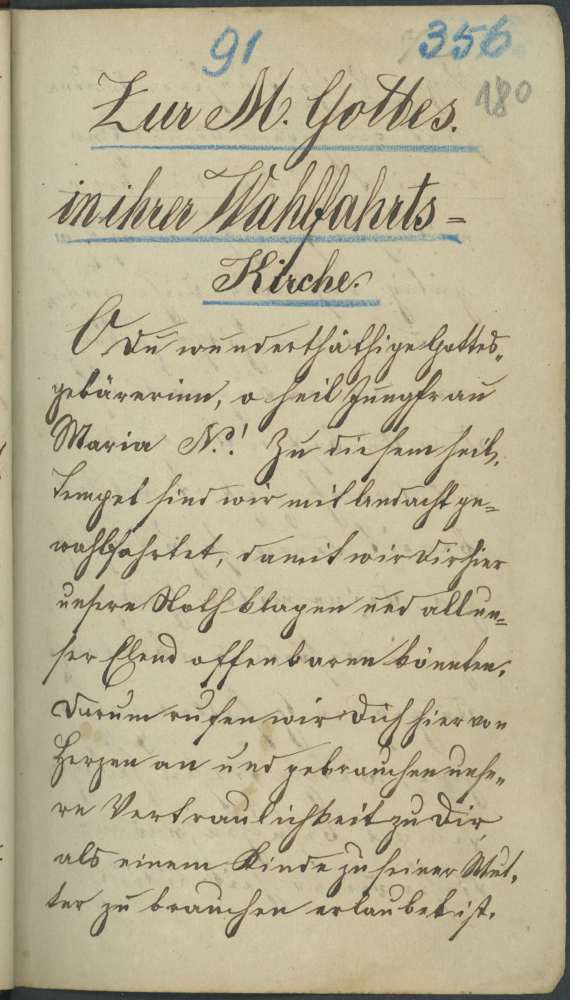 91 356
180
Zur M. Gottes.
in ihrer Wahlfahrts-
Kirche.
O Du wunderthäthige Gottes-
gebärerinn, o heil Jungfrau
Maria N.! Zu diesem heil.
Tempel sind wir mit Andacht ge-
wahlfahrtet, damit wir Dir hier
unsere Noth klagen und all un-
ser Elend offenbaren könnten.
Darum rufen wir Dich hier von
Herzen an und gebrauchen unse-
re Vertraulichkeit zu Dir,
als einem Kinde zu seiner Mut-
ter zu brauchen erlaubet ist.